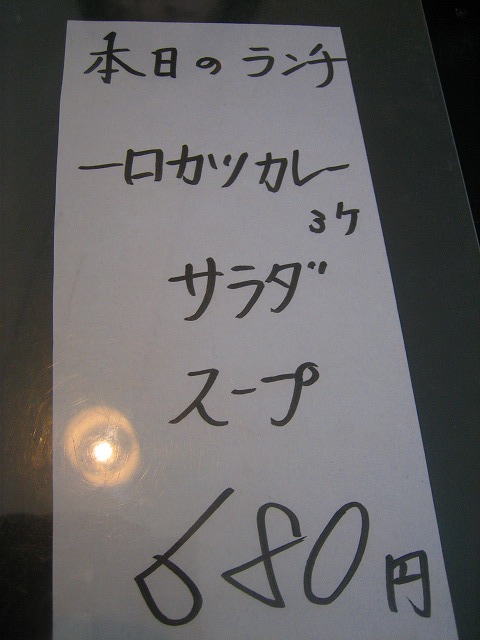 本日のランチ
一口カツカレー
3ケ
サラダ
スープ
680円